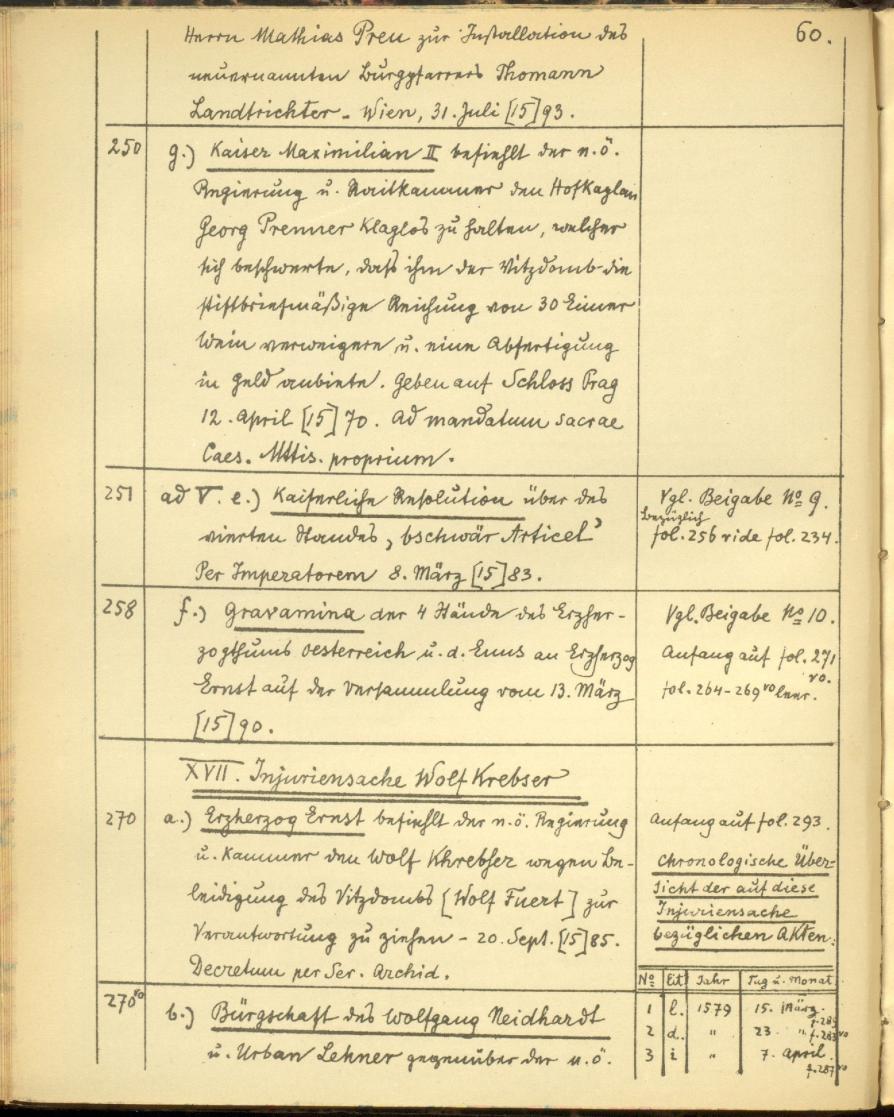 60.
Herrn Mathias Preu zur Installation des
neuernannten Burgpfarrers Thomann
Landtrichter - Wien, 31. Juli [15]93.
250 g.) Kaiser Maximilian II befiehlt der n.ö.
Regierung u. Raitkammer den Hofkaplan
Georg Prenner Klaglos zu halten, welcher
sich beschwerte, daß ihm der Vitzdomb die
stiftbriefmäßige Reichung von 30 Eimer
Wein verweigere u. eine Abfertigung
in Geld anbiete. Geben auf Schloss Prag
12. April [15]70. Ad mandatum sacrae
Caes. Mttis. proprium.
251 ad V. e.) Kaiserliche Resolution über des
vierten Standes „bschwär Articel"
Per Imperatorem 8. März [15]83.
Vgl. Beigabe No 9.
bezüglich
fol. 256 vide fol. 234.
258 f.) Gravamina der 4 Stände des Erzher-
zogthums Oesterreich u. d. Enns an Erzherzog
Ernst auf der Versammlung vom 13. März
[15]90.
Vgl. Beigabe No 10.
Anfang auf fol. 271
vo.
fol. 264-269 vo leer.
XVII. Injuriensache Wolf Krebser
270 a.) Erzherzog Ernst befiehlt der n.ö. Regierung
u. Kammer den Wolf Khrebser wegen Be-
leidigung des Vitzdombs [Wolf Fuert] zur
Verantwortung zu ziehen - 20. Sept. [15]85.
Decretum per Ser. Archid.
Anfang auf fol. 293.
Chronologische Über-
sicht der auf diese
Injuriensache
bezüglichen Akten:
270 vo b.) Bürgschaft des Wolfgang Neidhardt
u. Urban Lehner gegenüber der n.ö.
No Lit Jahr Tag u. Monat
1 l. 1579 15. März
f. 283
2 d. " 23. " f. 283 vo
3 i " 7. April
f. 287 vo